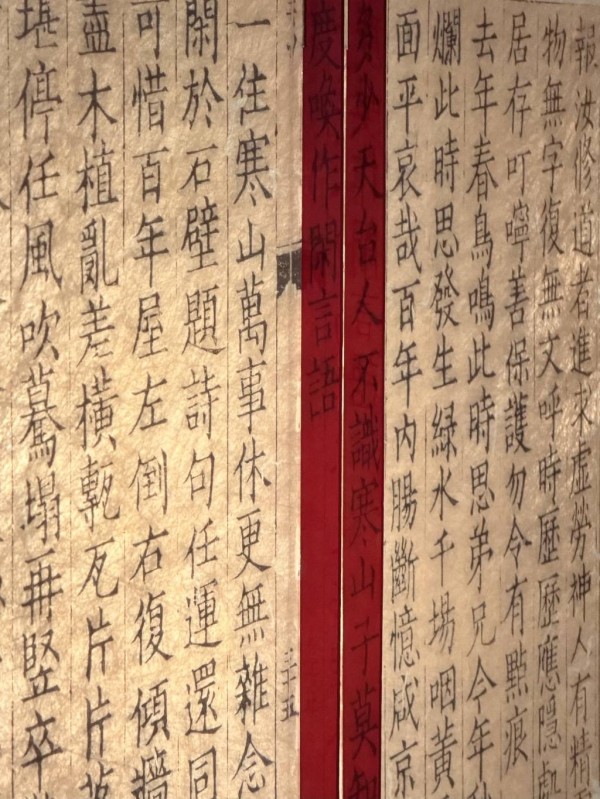 報汝修道者進求虛勞神人有精
物無字復無文呼時歷歷應隱處
居存叮嚀善保護勿令有點痕
去年春鳥鳴此時思弟兄今年秋
爛此時思發生綠水千場咽黃
面平哀哉百年內腸斷憶咸京
多少天台人不識寒山子莫知
度喚作閑言語
三十五
一住寒山萬事休更無雜念
閑於石壁題詩句任運還同
可惜百年屋左倒右復傾牆
盡木植亂差橫甎瓦片片落
堪停任風吹驀塌再竪卒